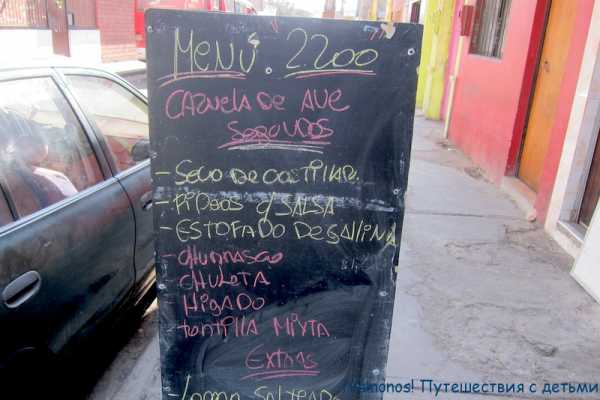 MENÚ. 2200
CAZUELA DE AVE
SEGUNDOS
- SECO DE COSTILLAR
- FIDEOS C/ SALSA
- ESTOFADO DE GALLINA
- CHURRASCO
- CHULETA
- HIGADO
- tortilla MIXTA
Extras
- Lomo SALTADO
Vamonos! Путешествия с детьми